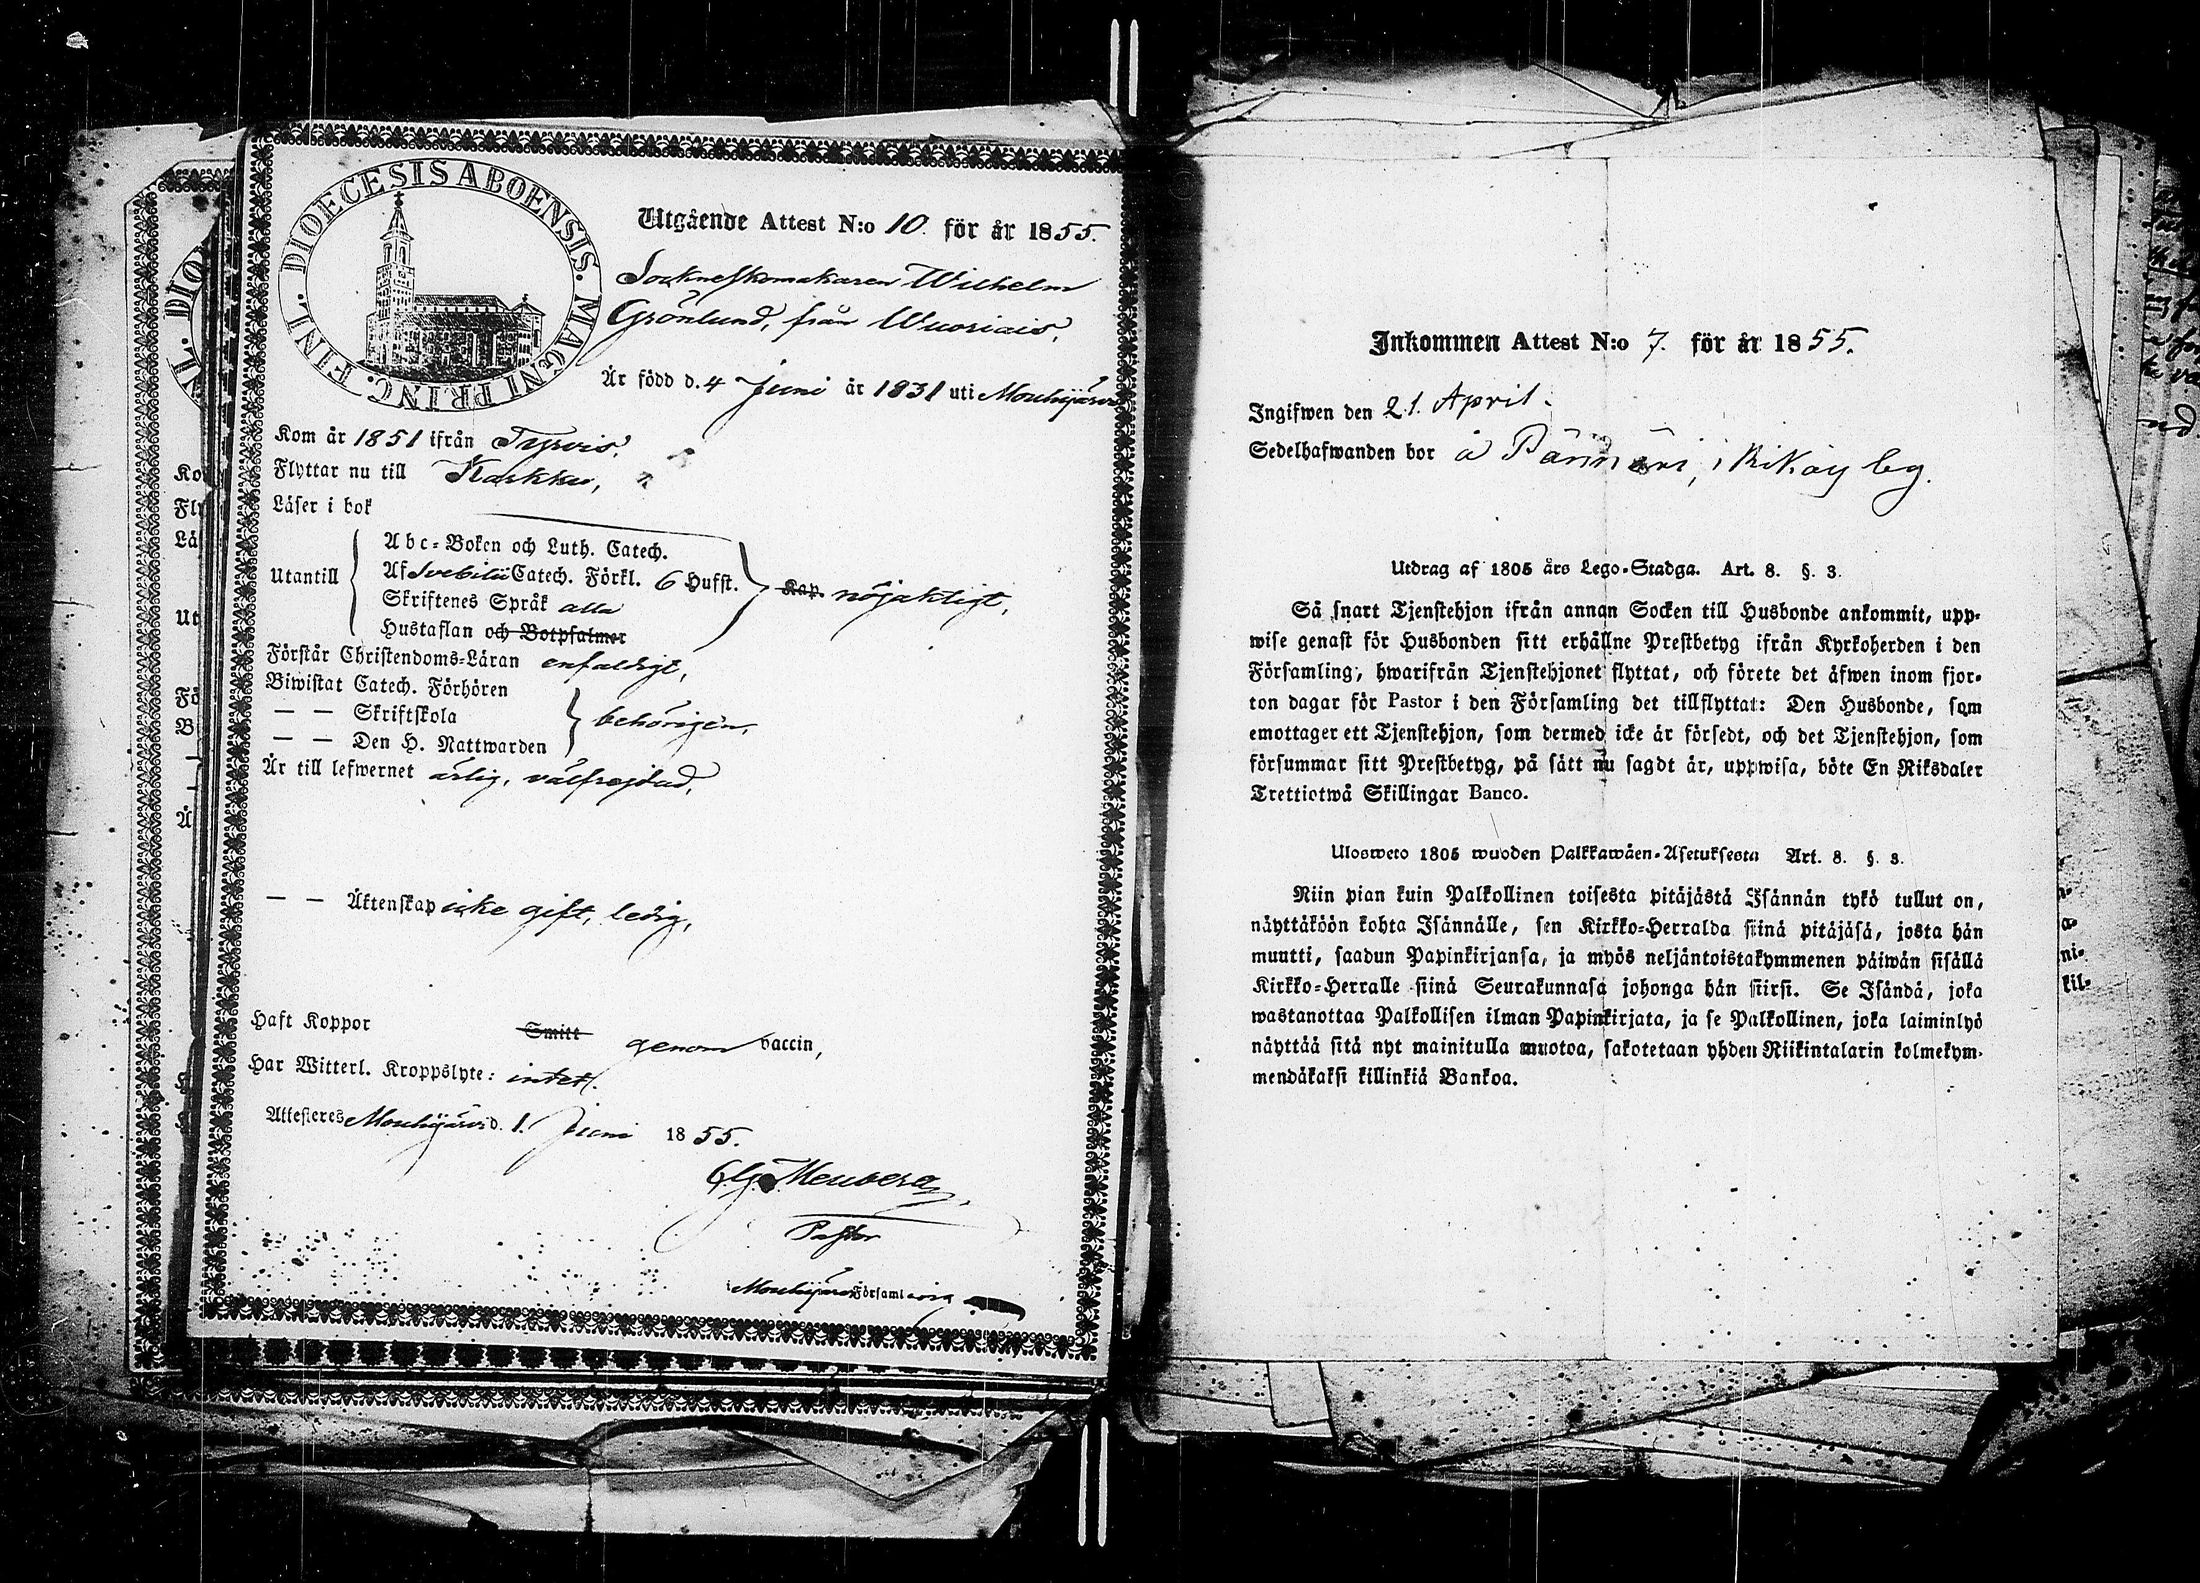 DIOECESIS ABOENSIS. MAGNI PRINC. FINL.
Utgående Attest N:o 10. för år 1855.
Sockneskomakaren Wilhelm
Grönlund, från Wuoriais,
Är född d. 4 Juni år 1831 uti Mouhijärvi
Kom år 1851 ifrån Tyrvis,
Flyttar nu till Karkku,
Läser i bok
Utantill
Abc-Boken och Luth. Catech.
Af Svebilii Catech. Förkl. 6 Hufst.
Skriftenes Språk alla
Hustaflan och Botpsalmer
Kap. nöjaktigt,
Förstår Christendoms-Läran enfaldigt,
Biwistat Catech. Förhören
— — Skriftskola
— — Den H. Nattwarden
behörigen,
Är till lefwernet ärlig, välfrejdad,
— — Äktenskap icke gift, ledig,
Haft Koppor Smitt genom vaccin,
Har Witterl. Kroppslyte: intet.
Attesteres Mouhijärvi d. 1. Juni 1855.
Pastor
Mouhijärvi Församling
Inkommen Attest N:o 7. för år 1855.
Ingifwen den 21. April.
Sedelhafwanden bor å
Utdrag af 1805 års Lego-Stadga. Art. 8. §. 3.
Så snart Tjenstehjon ifrån annan Socken till Husbonde ankommit, upp-
wise genast för Husbonden sitt erhållne Prestbetyg ifrån Kyrkoherden i den
Församling, hwarifrån Tjenstehjonet flyttat, och förete det äfwen inom fjor-
ton dagar för Pastor i den Församling det tillflyttat: Den Husbonde, som
emottager ett Tjenstehjon, som dermed icke är försedt, och det Tjenstehjon, som
försummar sitt Prestbetyg, på sätt nu sagdt är, uppwisa, böte En Riksdaler
Trettiotwå Skillingar Banco.
Ulosweto 1805 wuoden Palkkawäen-Asetuksesta Art. 8. §. 3.
Niin pian kuin Palkollinen toisesta pitäjästä Isännän tykö tullut on,
näyttäköön kohta Isännälle, sen Kirkko-Herralda siinä pitäjäsä, josta hän
muutti, saadun Papinkirjansa, ja myös neljäntoistakymmenen päiwän sisällä
Kirkko-Herralle siinä Seurakunnasa johonga hän siirsi. Se Isändä, joka
wastanottaa Palkollisen ilman Papinkirjata, ja se Palkollinen, joka laiminlyö
näyttää sitä nyt mainitulla muotoa, sakotetaan yhden Riikintalarin kolmekym-
mendäkaksi killinkiä Bankoa.